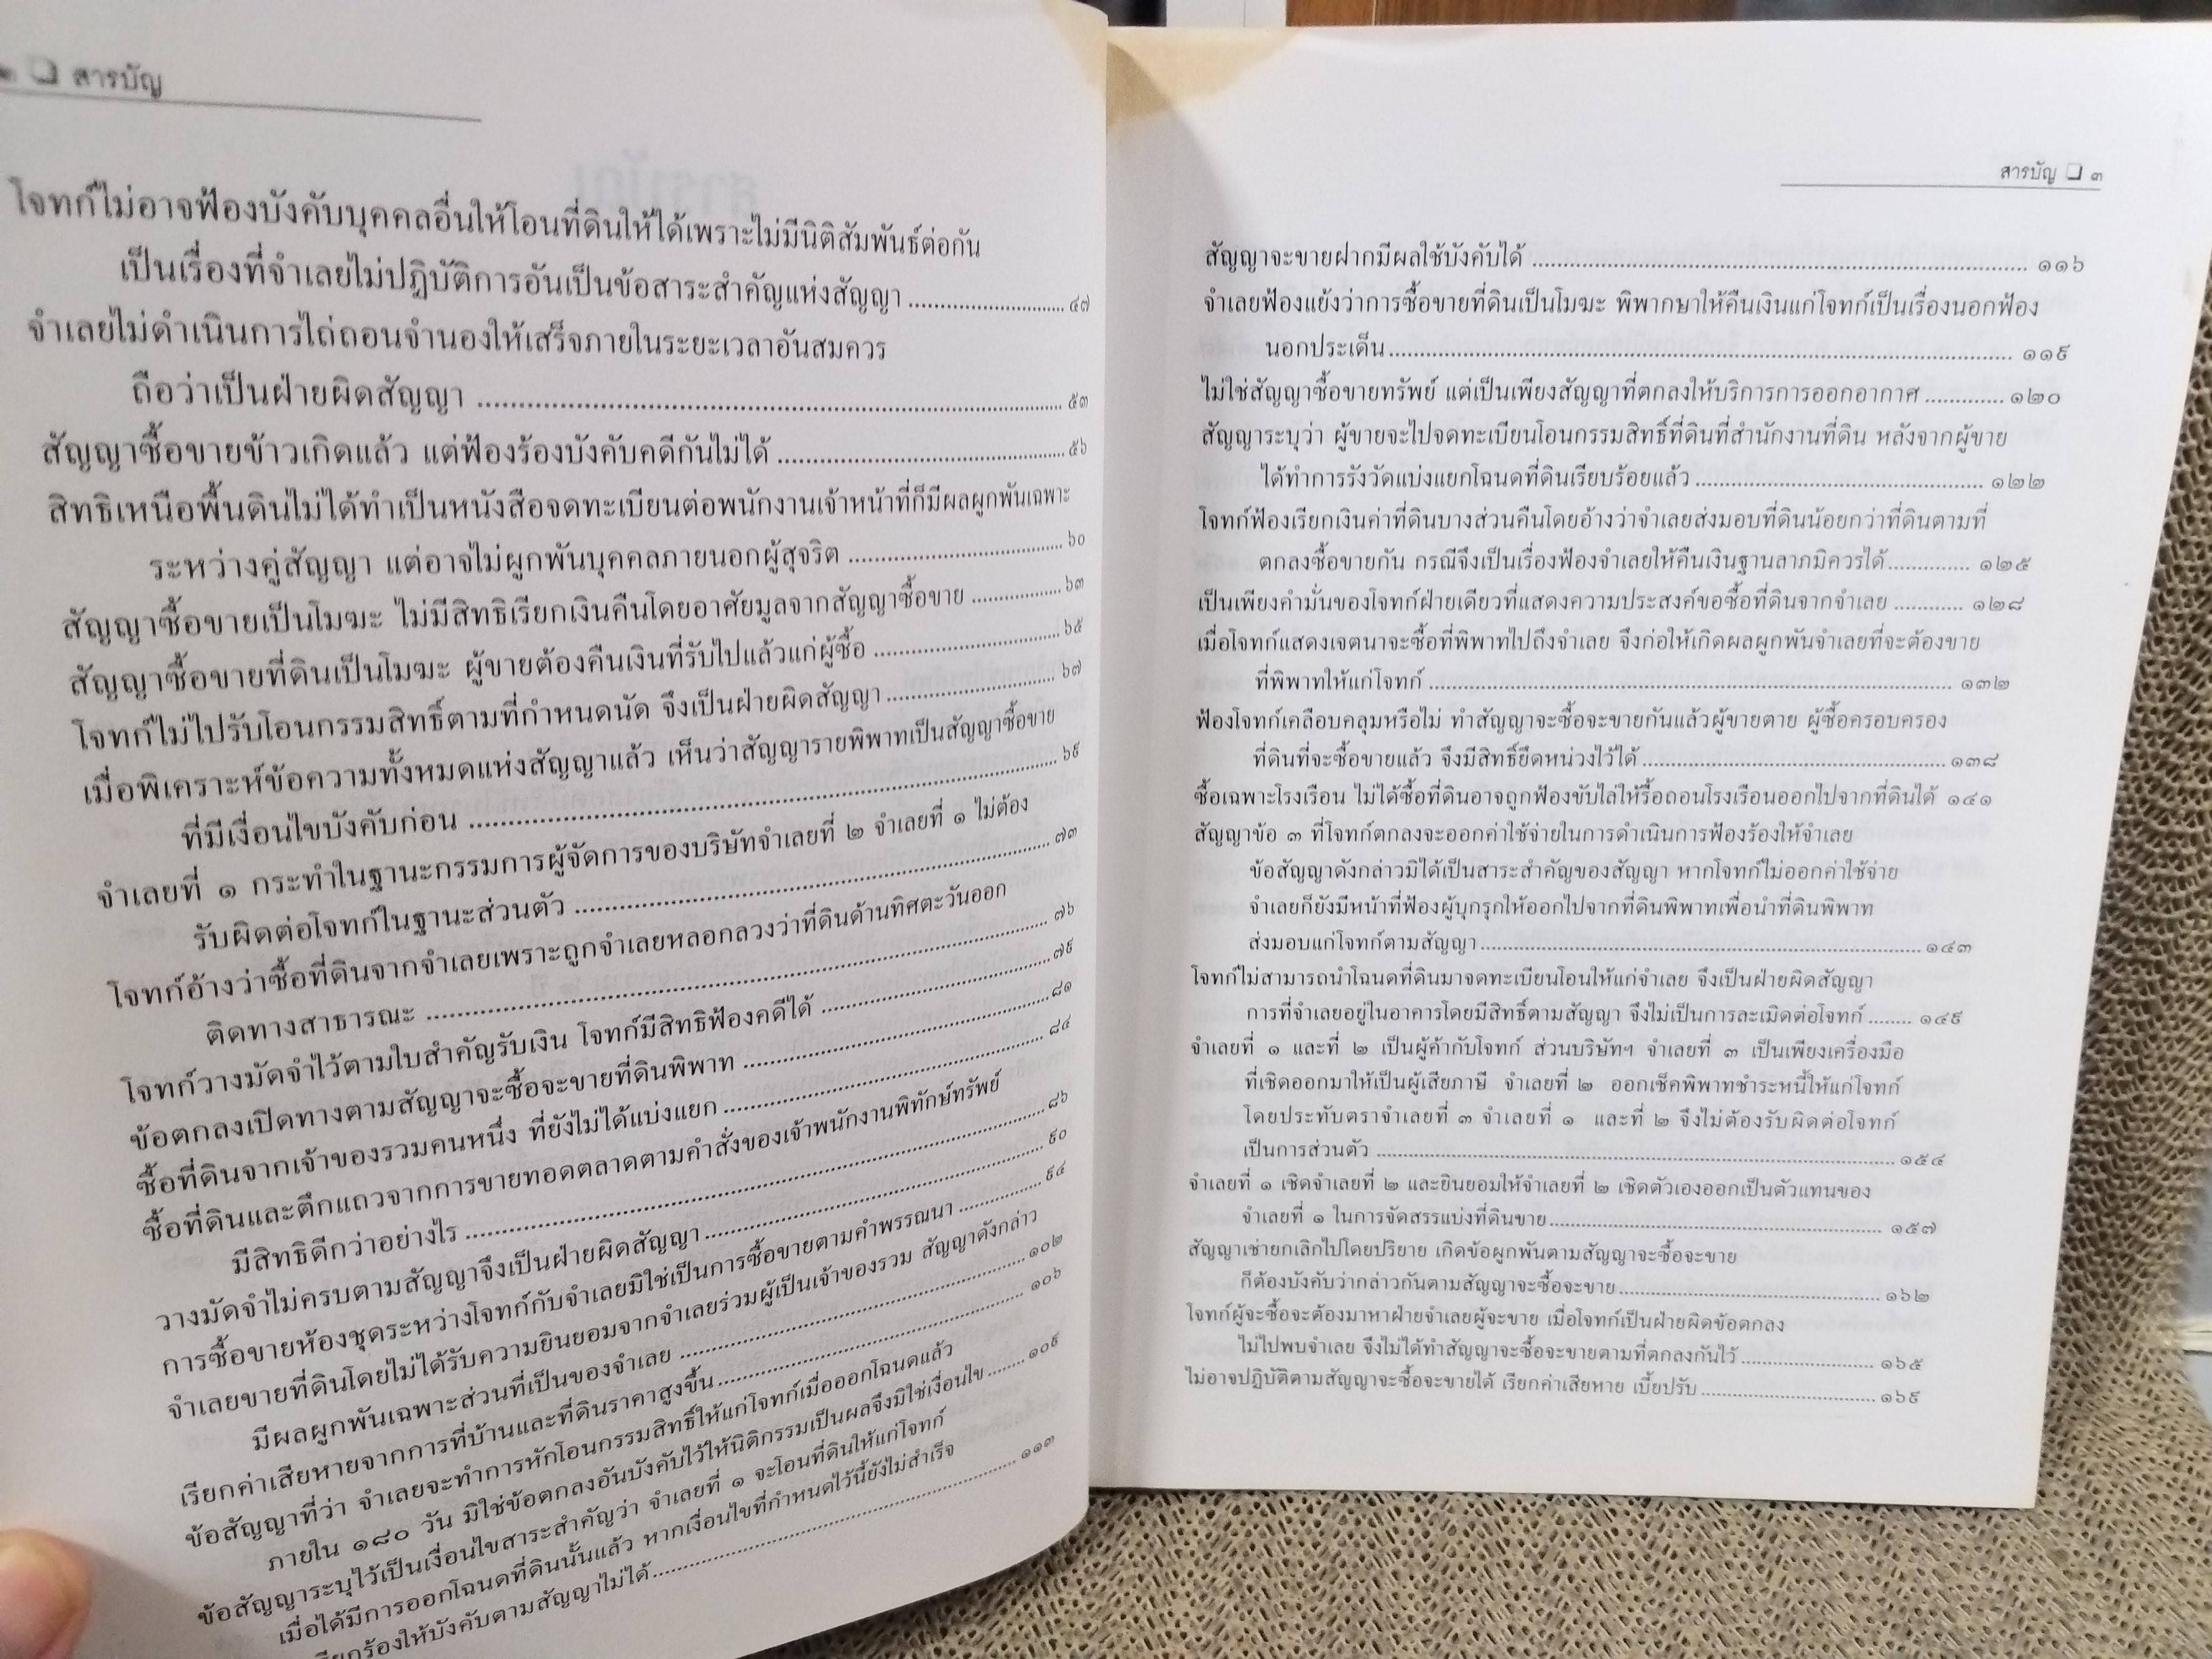 ๒ ❑ สารบัญ
โจทก์ไม่อาจฟ้องบังคับบุคคลอื่นให้โอนที่ดินให้ได้เพราะไม่มีนิติสัมพันธ์ต่อกัน
เป็นเรื่องที่จำเลยไม่ปฏิบัติการอันเป็นข้อสาระสำคัญแห่งสัญญา ........................... ๔๗
จำเลยไม่ดำเนินการไถ่ถอนจำนองให้เสร็จภายในระยะเวลาอันสมควร
ถือว่าเป็นฝ่ายผิดสัญญา ........................... ๕๓
สัญญาซื้อขายข้าวเกิดแล้ว แต่ฟ้องร้องบังคับคดีกันไม่ได้ ........................... ๕๖
สิทธิเหนือพื้นดินไม่ได้ทำเป็นหนังสือจดทะเบียนต่อพนักงานเจ้าหน้าที่ก็มีผลผูกพันเฉพาะ
ระหว่างคู่สัญญา แต่อาจไม่ผูกพันบุคคลภายนอกผู้สุจริต ........................... ๖๐
สัญญาซื้อขายเป็นโมฆะ ไม่มีสิทธิเรียกเงินคืนโดยอาศัยมูลจากสัญญาซื้อขาย ................ ๖๓
สัญญาซื้อขายที่ดินเป็นโมฆะ ผู้ขายต้องคืนเงินที่รับไปแล้วแก่ผู้ซื้อ ........................... ๖๕
โจทก์ไม่ไปรับโอนกรรมสิทธิ์ตามที่กำหนดนัด จึงเป็นฝ่ายผิดสัญญา ........................... ๖๗
เมื่อพิเคราะห์ข้อความทั้งหมดแห่งสัญญาแล้ว เห็นว่าสัญญารายพิพาทเป็นสัญญาซื้อขาย
ที่มีเงื่อนไขบังคับก่อน ........................... ๖๙
จำเลยที่ ๑ กระทำในฐานะกรรมการผู้จัดการของบริษัทจำเลยที่ ๒ จำเลยที่ ๑ ไม่ต้อง
รับผิดต่อโจทก์ในฐานะส่วนตัว ........................... ๗๓
โจทก์อ้างว่าซื้อที่ดินจากจำเลยเพราะถูกจำเลยหลอกลวงว่าที่ดินด้านทิศตะวันออก
ติดทางสาธารณะ ........................... ๗๖
โจทก์วางมัดจำไว้ตามใบสำคัญรับเงิน โจทก์มีสิทธิฟ้องคดีได้ ........................... ๗๙
ข้อตกลงเปิดทางตามสัญญาจะซื้อจะขายที่ดินพิพาท ........................... ๘๑
ซื้อที่ดินจากเจ้าของรวมคนหนึ่ง ที่ยังไม่ได้แบ่งแยก ........................... ๘๔
ซื้อที่ดินและตึกแถวจากการขายทอดตลาดตามคำสั่งของเจ้าพนักงานพิทักษ์ทรัพย์
มีสิทธิดีกว่าอย่างไร ........................... ๘๖
วางมัดจำไม่ครบตามสัญญาจึงเป็นฝ่ายผิดสัญญา ........................... ๙๐
การซื้อขายห้องชุดระหว่างโจทก์กับจำเลยมิใช่เป็นการซื้อขายตามคำพรรณนา ............... ๙๔
จำเลยขายที่ดินโดยไม่ได้รับความยินยอมจากจำเลยร่วมผู้เป็นเจ้าของรวม สัญญาดังกล่าว
มีผลผูกพันเฉพาะส่วนที่เป็นของจำเลย ........................... ๑๐๒
เรียกค่าเสียหายจากการที่บ้านและที่ดินราคาสูงขึ้น ........................... ๑๐๖
ข้อสัญญาที่ว่า จำเลยจะทำการหักโอนกรรมสิทธิ์ให้แก่โจทก์เมื่อออกโฉนดแล้ว
ภายใน ๑๘๐ วัน มิใช่ข้อตกลงอันบังคับไว้ให้นิติกรรมเป็นผลจึงมิใช่เงื่อนไข ........ ๑๐๙
ข้อสัญญาระบุไว้เป็นเงื่อนไขสาระสำคัญว่า จำเลยที่ ๑ จะโอนที่ดินให้แก่โจทก์
เมื่อได้มีการออกโฉนดที่ดินนั้นแล้ว หากเงื่อนไขที่กำหนดไว้นี้ยังไม่สำเร็จ
เรียกร้องให้บังคับตามสัญญาไม่ได้ ........................... ๑๑๓
สารบัญ ❑ ๓
สัญญาจะขายฝากมีผลใช้บังคับได้ ........................... ๑๑๖
จำเลยฟ้องแย้งว่าการซื้อขายที่ดินเป็นโมฆะ พิพากษาให้คืนเงินแก่โจทก์เป็นเรื่องนอกฟ้อง
นอกประเด็น ........................... ๑๑๙
ไม่ใช่สัญญาซื้อขายทรัพย์ แต่เป็นเพียงสัญญาที่ตกลงให้บริการการออกอากาศ ............. ๑๒๐
สัญญาระบุว่า ผู้ขายจะไปจดทะเบียนโอนกรรมสิทธิ์ที่ดินที่สำนักงานที่ดิน หลังจากผู้ขาย
ได้ทำการรังวัดแบ่งแยกโฉนดที่ดินเรียบร้อยแล้ว ........................... ๑๒๒
โจทก์ฟ้องเรียกเงินค่าที่ดินบางส่วนคืนโดยอ้างว่าจำเลยส่งมอบที่ดินน้อยกว่าที่ดินตามที่
ตกลงซื้อขายกัน กรณีจึงเป็นเรื่องฟ้องจำเลยให้คืนเงินฐานลาภมิควรได้ ............... ๑๒๕
เป็นเพียงคำมั่นของโจทก์ฝ่ายเดียวที่แสดงความประสงค์ขอซื้อที่ดินจากจำเลย ............ ๑๒๘
เมื่อโจทก์แสดงเจตนาจะซื้อที่พิพาทไปถึงจำเลย จึงก่อให้เกิดผลผูกพันจำเลยที่จะต้องขาย
ที่พิพาทให้แก่โจทก์ ........................... ๑๓๒
ฟ้องโจทก์เคลือบคลุมหรือไม่ ทำสัญญาจะซื้อจะขายกันแล้วผู้ขายตาย ผู้ซื้อครอบครอง
ที่ดินที่จะซื้อขายแล้ว จึงมีสิทธิยึดหน่วงไว้ได้ ........................... ๑๓๘
ซื้อเฉพาะโรงเรือน ไม่ได้ซื้อที่ดินอาจถูกฟ้องขับไล่ให้รื้อถอนโรงเรือนออกไปจากที่ดินได้ ๑๔๑
สัญญาข้อ ๓ ที่โจทก์ตกลงจะออกค่าใช้จ่ายในการดำเนินการฟ้องร้องให้จำเลย
ข้อสัญญาดังกล่าวมิได้เป็นสาระสำคัญของสัญญา หากโจทก์ไม่ออกค่าใช้จ่าย
จำเลยก็ยังมีหน้าที่ฟ้องผู้บุกรุกให้ออกไปจากที่ดินพิพาทเพื่อนำที่ดินพิพาท
ส่งมอบแก่โจทก์ตามสัญญา ........................... ๑๔๓
โจทก์ไม่สามารถนำโฉนดที่ดินมาจดทะเบียนโอนให้แก่จำเลย จึงเป็นฝ่ายผิดสัญญา
การที่จำเลยอยู่ในอาคารโดยมีสิทธิ์ตามสัญญา จึงไม่เป็นการละเมิดต่อโจทก์ ........ ๑๔๙
จำเลยที่ ๑ และที่ ๒ เป็นผู้ค้ากับโจทก์ ส่วนบริษัทฯ จำเลยที่ ๓ เป็นเพียงเครื่องมือ
ที่เชิดออกมาให้เป็นผู้เสียภาษี จำเลยที่ ๒ ออกเช็คพิพาทชำระหนี้ให้แก่โจทก์
โดยประทับตราจำเลยที่ ๓ จำเลยที่ ๑ และที่ ๒ จึงไม่ต้องรับผิดต่อโจทก์
เป็นการส่วนตัว ........................... ๑๕๔
จำเลยที่ ๑ เชิดจำเลยที่ ๒ และยินยอมให้จำเลยที่ ๒ เชิดตัวเองออกเป็นตัวแทนของ
จำเลยที่ ๑ ในการจัดสรรแบ่งที่ดินขาย ........................... ๑๕๗
สัญญาเช่ายกเลิกไปโดยปริยาย เกิดข้อผูกพันตามสัญญาจะซื้อจะขาย
ก็ต้องบังคับว่ากล่าวกันตามสัญญาจะซื้อจะขาย ........................... ๑๖๒
โจทก์ผู้จะซื้อจะต้องมาหาฝ่ายจำเลยผู้จะขาย เมื่อโจทก์เป็นฝ่ายผิดข้อตกลง
ไม่ไปพบจำเลย จึงไม่ได้ทำสัญญาจะซื้อจะขายตามที่ตกลงกันไว้ ........................... ๑๖๕
ไม่อาจปฏิบัติตามสัญญาจะซื้อจะขายได้ เรียกค่าเสียหาย เบี้ยปรับ ........................... ๑๖๙